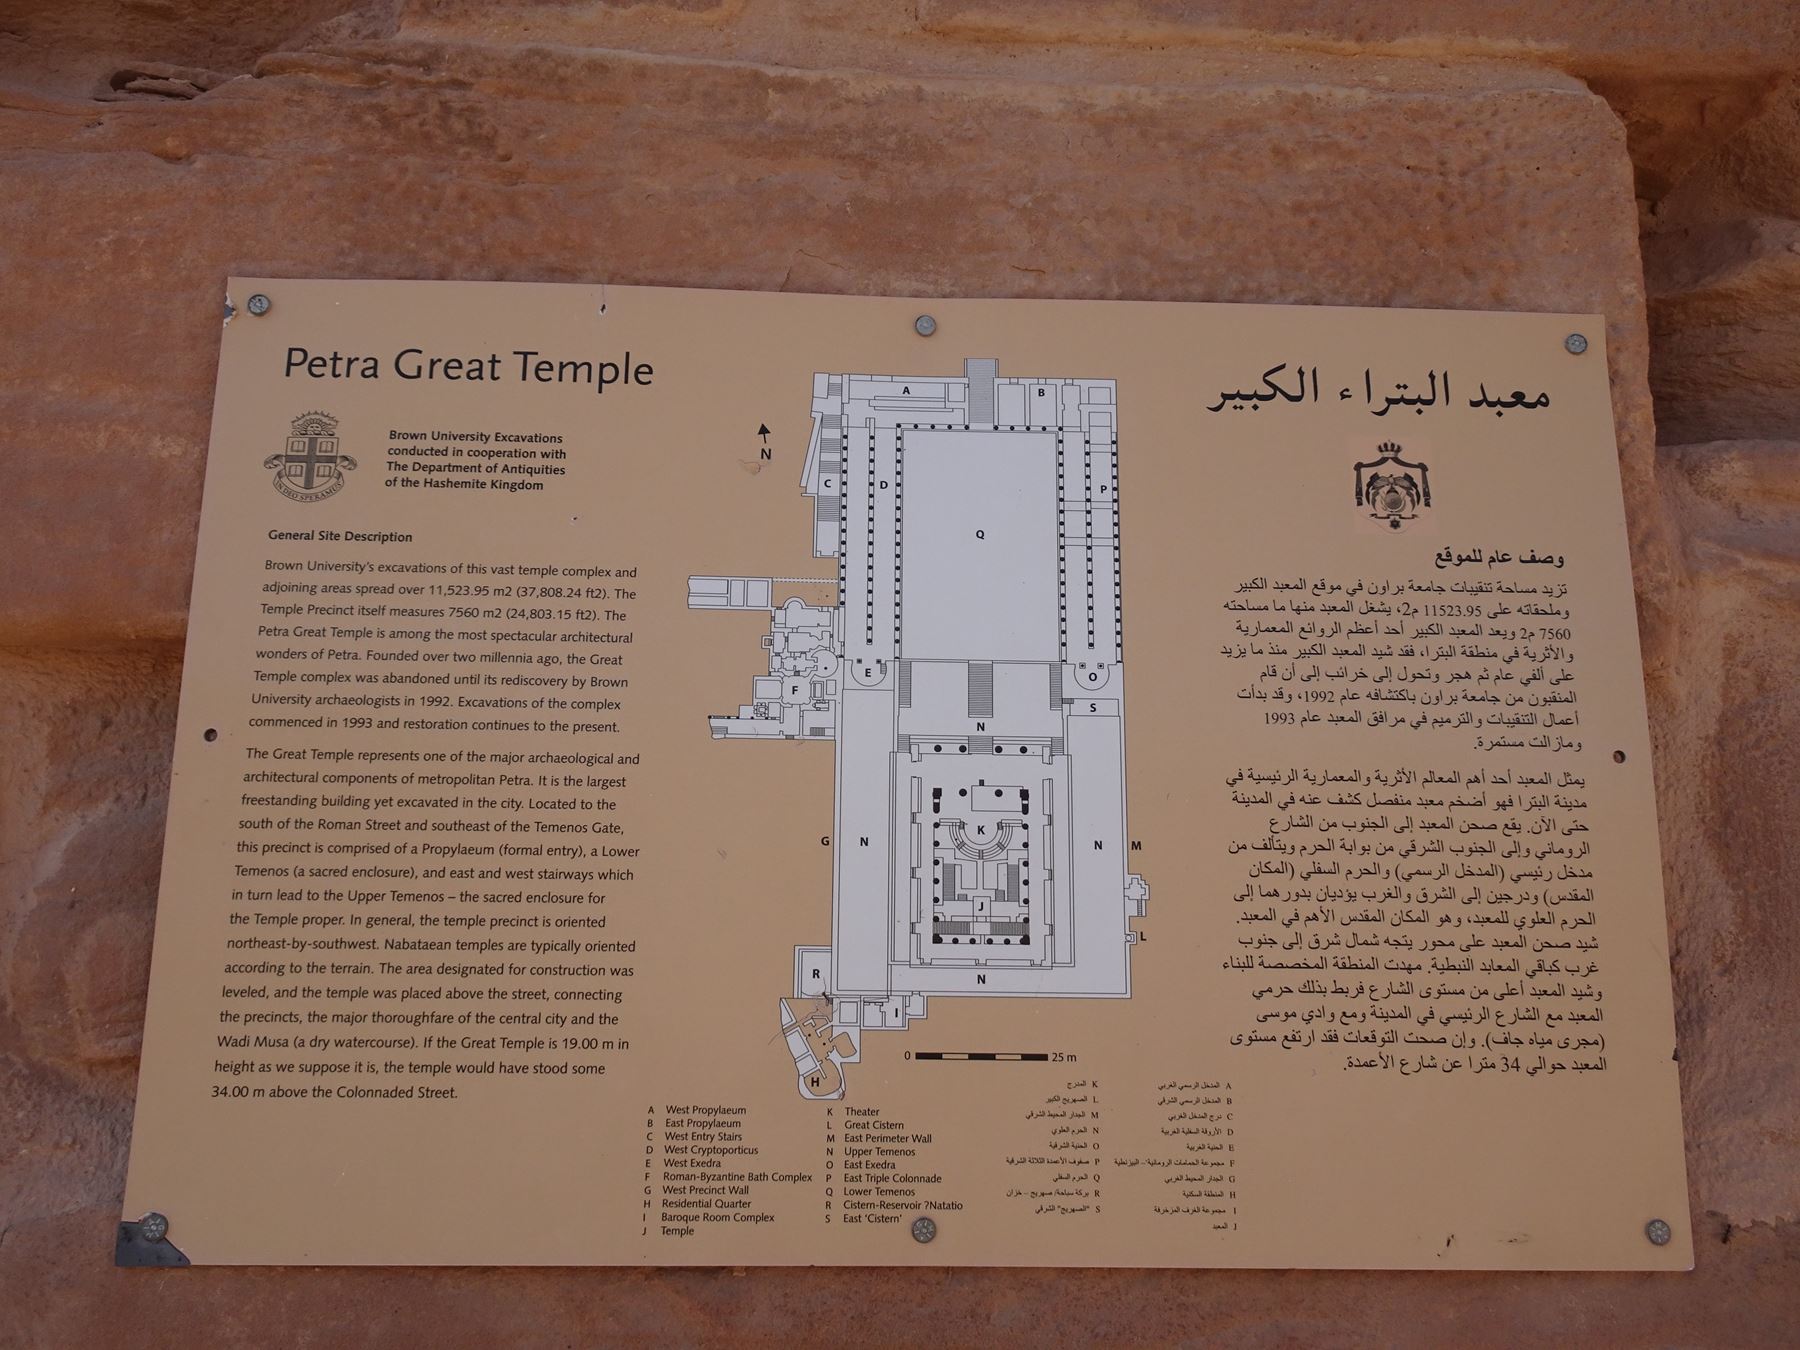 Petra Great Temple
Brown University Excavations
conducted in cooperation with
The Department of Antiquities
of the Hashemite Kingdom
IN DEO SPERAMUS
General Site Description
Brown University's excavations of this vast temple complex and
adjoining areas spread over 11,523.95 m2 (37,808.24 ft2). The
Temple Precinct itself measures 7560 m2 (24,803.15 ft2). The
Petra Great Temple is among the most spectacular architectural
wonders of Petra. Founded over two millennia ago, the Great
Temple complex was abandoned until its rediscovery by Brown
University archaeologists in 1992. Excavations of the complex
commenced in 1993 and restoration continues to the present.
The Great Temple represents one of the major archaeological and
architectural components of metropolitan Petra. It is the largest
freestanding building yet excavated in the city. Located to the
south of the Roman Street and southeast of the Temenos Gate,
this precinct is comprised of a Propylaeum (formal entry), a Lower
Temenos (a sacred enclosure), and east and west stairways which
in turn lead to the Upper Temenos – the sacred enclosure for
the Temple proper. In general, the temple precinct is oriented
northeast-by-southwest. Nabataean temples are typically oriented
according to the terrain. The area designated for construction was
leveled, and the temple was placed above the street, connecting
the precincts, the major thoroughfare of the central city and the
Wadi Musa (a dry watercourse). If the Great Temple is 19.00 m in
height as we suppose it is, the temple would have stood some
34.00 m above the Colonnaded Street.
N
A
B
C
D
P
Q
E
O
F
S
N
K
G
N
N
M
J
L
R
N
I
H
0
25 m
A West Propylaeum
B East Propylaeum
C West Entry Stairs
D West Cryptoporticus
E West Exedra
F Roman-Byzantine Bath Complex
G West Precinct Wall
H Residential Quarter
I Baroque Room Complex
J Temple
K Theater
L Great Cistern
M East Perimeter Wall
N Upper Temenos
O East Exedra
P East Triple Colonnade
Q Lower Temenos
R Cistern-Reservoir ?Natatio
S East 'Cistern'
معبد البتراء الكبير
وصف عام للموقع
تزيد مساحة تنقيبات جامعة براون في موقع المعبد الكبير
وملحقاته على 11523.95 م2، يشغل المعبد منها ما مساحته
7560 م2 ويعد المعبد الكبير أحد أعظم الروائع المعمارية
والأثرية في منطقة البترا، فقد شيد المعبد الكبير منذ ما يزيد
على ألفي عام ثم هجر وتحول إلى خرائب إلى أن قام
المنقبون من جامعة براون باكتشافه عام 1992، وقد بدأت
أعمال التنقيبات والترميم في مرافق المعبد عام 1993
ومازالت مستمرة.
يمثل المعبد أحد أهم المعالم الأثرية والمعمارية الرئيسية في
مدينة البترا فهو أضخم معبد منفصل كشف عنه في المدينة
حتى الآن. يقع صحن المعبد إلى الجنوب من الشارع
الروماني وإلى الجنوب الشرقي من بوابة الحرم ويتألف من
مدخل رئيسي (المدخل الرسمي) والحرم السفلي (المكان
المقدس) ودرجين إلى الشرق والغرب يؤديان بدورهما إلى
الحرم العلوي للمعبد، وهو المكان المقدس الأهم في المعبد.
شيد صحن المعبد على محور يتجه شمال شرق إلى جنوب
غرب كباقي المعابد النبطية. مهدت المنطقة المخصصة للبناء
وشيد المعبد أعلى من مستوى الشارع فربط بذلك حرمي
المعبد مع الشارع الرئيسي في المدينة ومع وادي موسى
(مجرى مياه جاف). وإن صحت التوقعات فقد ارتفع مستوى
المعبد حوالي 34 مترا عن شارع الأعمدة.
A المدخل الرسمي الغربي
B المدخل الرسمي الشرقي
C درج المدخل الغربي
D الأروقة السفلية الغربية
E الحنية الغربية
F مجموعة الحمامات الرومانية – البيزنطية
G الجدار المحيط الغربي
H المنطقة السكنية
I مجموعة الغرف المزخرفة
J المعبد
K المدرج
L الصهريج الكبير
M الجدار المحيط الشرقي
N الحرم العلوي
O الحنية الشرقية
P صفوف الأعمدة الثلاثة الشرقية
Q الحرم السفلي
R بركة سباحة/ صهريج – خزان
S "الصهريج" الشرقي